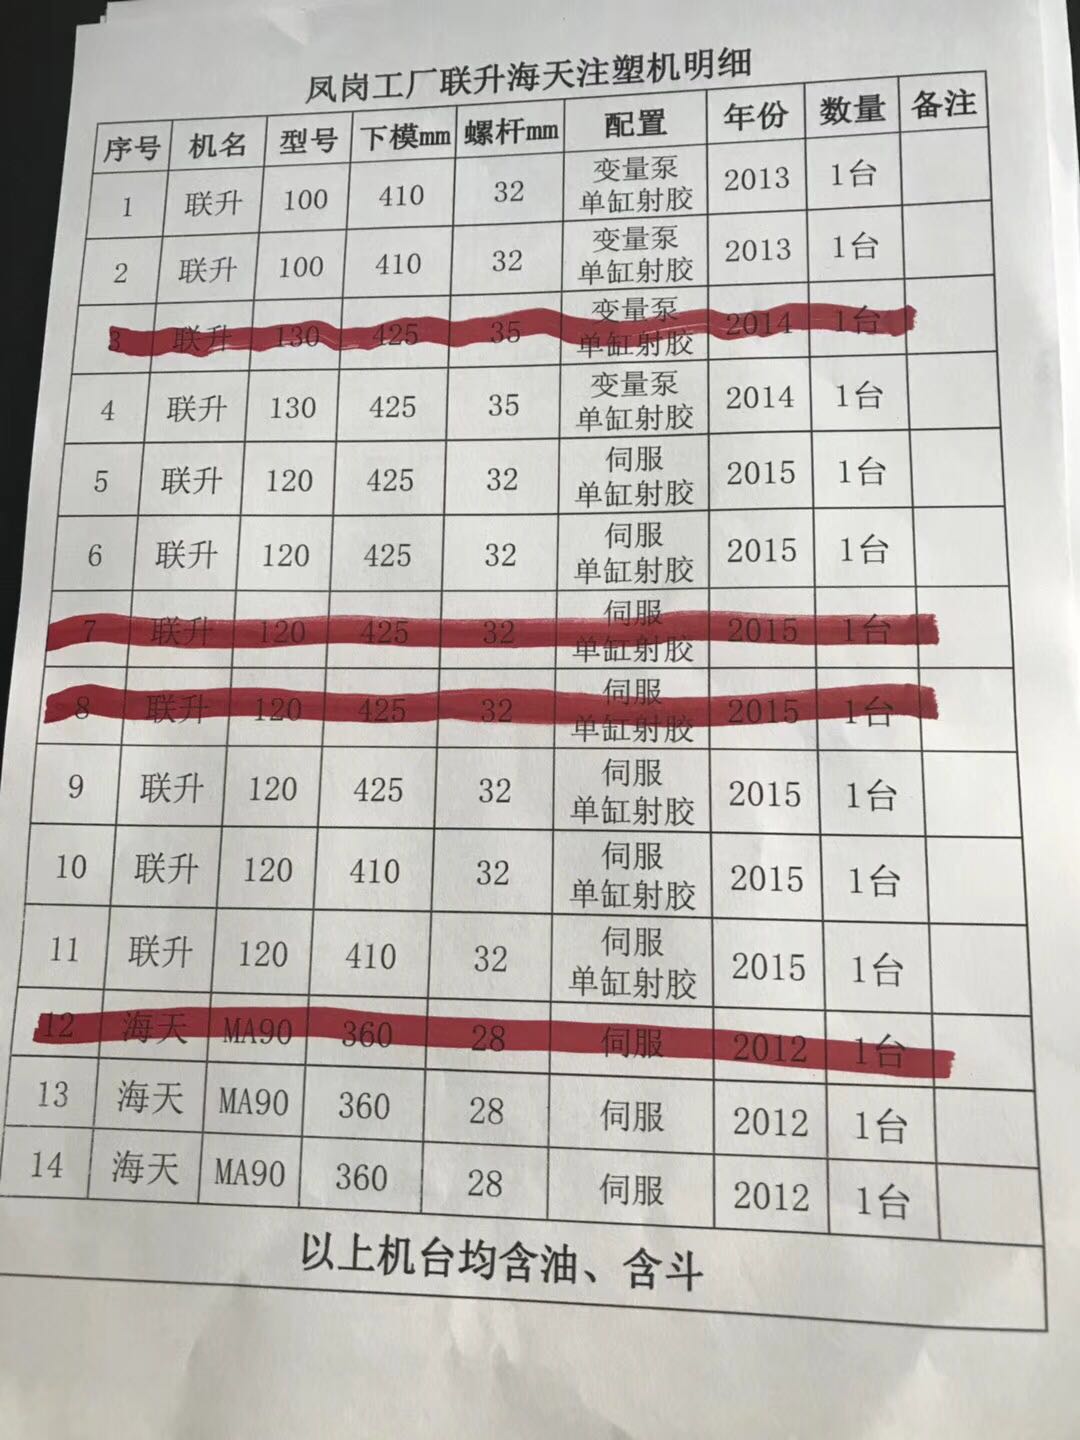 凤岗工厂联升海天注塑机明细
序号 机名 型号 下模mm 螺杆mm 配置 年份 数量 备注
1 联升 100 410 32 变量泵 单缸射胶 2013 1台
2 联升 100 410 32 变量泵 单缸射胶 2013 1台
3 联升 130 425 35 变量泵 单缸射胶 2014 1台
4 联升 130 425 35 变量泵 单缸射胶 2014 1台
5 联升 120 425 32 伺服 单缸射胶 2015 1台
6 联升 120 425 32 伺服 单缸射胶 2015 1台
7 联升 120 425 32 伺服 单缸射胶 2015 1台
8 联升 120 425 32 伺服 单缸射胶 2015 1台
9 联升 120 425 32 伺服 单缸射胶 2015 1台
10 联升 120 410 32 伺服 单缸射胶 2015 1台
11 联升 120 410 32 伺服 单缸射胶 2015 1台
12 海天 MA90 360 28 伺服 2012 1台
13 海天 MA90 360 28 伺服 2012 1台
14 海天 MA90 360 28 伺服 2012 1台
以上机台均含油、含斗